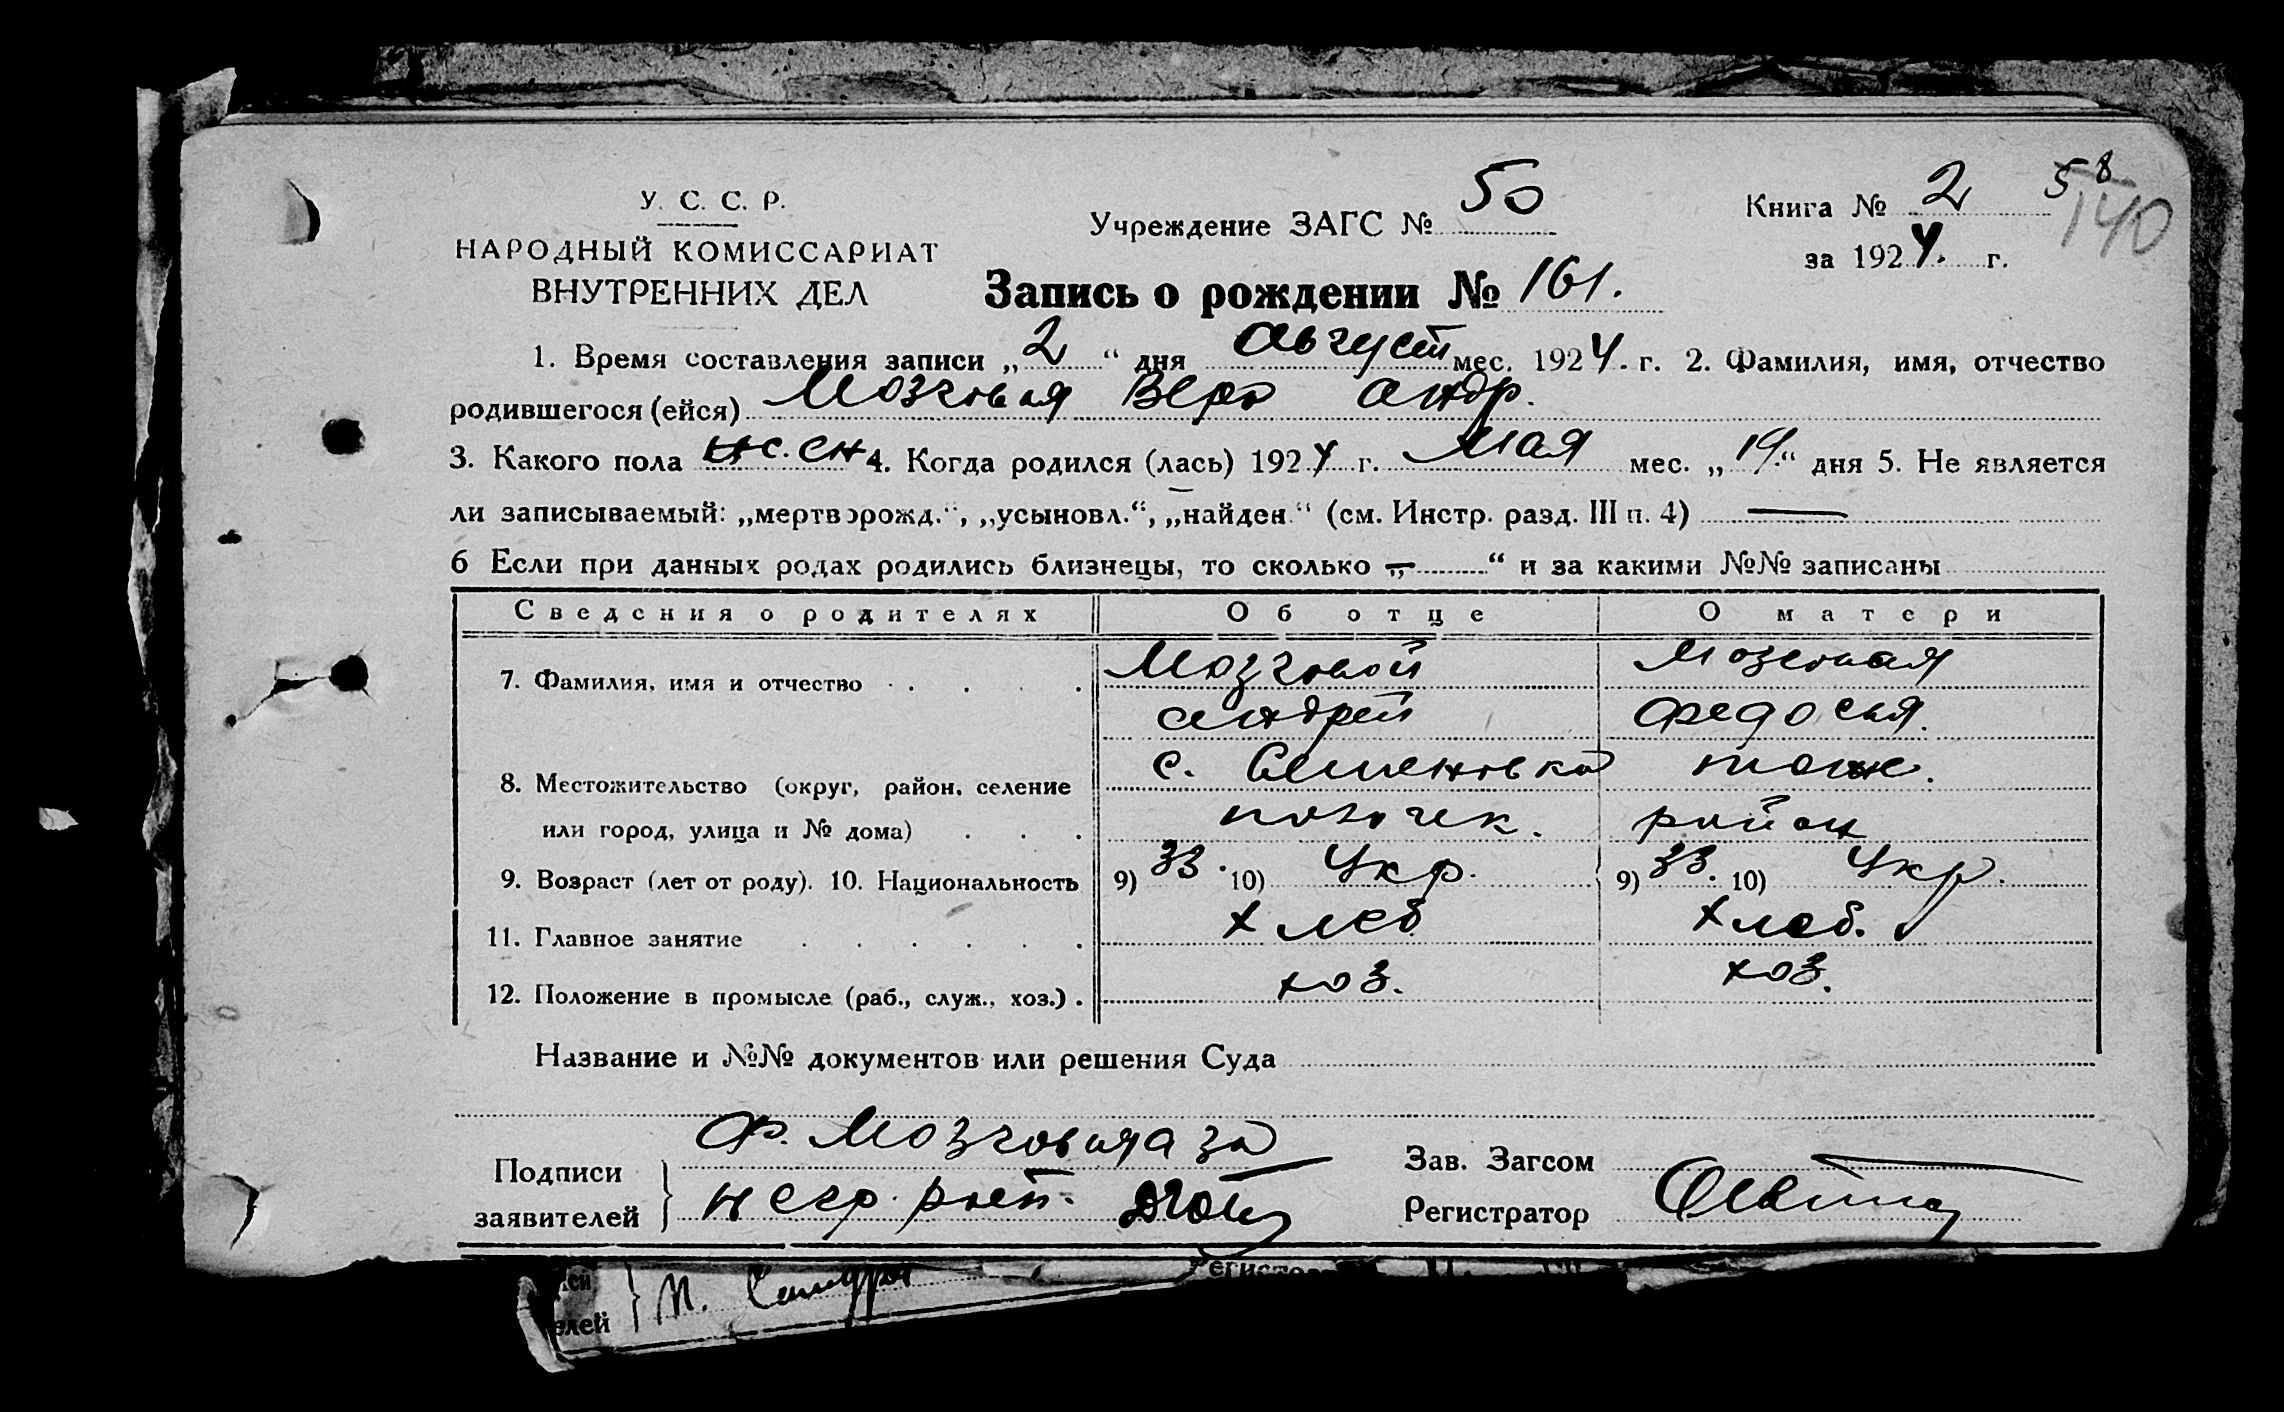 У. С. С. Р.
НАРОДНЫЙ КОМИССАРИАТ
ВНУТРЕННИХ ДЕЛ
Учреждение ЗАГС № 50
Книга № 2
58
140
за 1924. г.
Запись о рождении № 161.
1. Время составления записи „2“ дня Август мес. 1924. г. 2. Фамилия, имя, отчество
родившегося (ейся) Мозговая Вера Андр.
3. Какого пола жен 4. Когда родился (лась) 1924 г. Мая мес. „19.“ дня 5. Не является
ли записываемый: „мертворожд.“, „усыновл.“, „найден.“ (см. Инстр. разд. III п. 4) —
6 Если при данных родах родились близнецы, то сколько „—“ и за какими №№ записаны
Сведения о родителях Об отце О матери
7. Фамилия, имя и отчество Мозговой Мозговая
Андрей Федосья.
8. Местожительство (округ, район, селение с. Семеновка тоже.
или город, улица и № дома) район
9. Возраст (лет от роду). 10. Национальность 9) 33. 10) Укр. 9) 33. 10) Укр.
11. Главное занятие хлеб хлеб.
12. Положение в промысле (раб., служ., хоз.) хоз. хоз.
Название и №№ документов или решения Суда
Подписи заявителей
Ф. Мозговая а за
негр. расп.
Зав. Загсом
Регистратор
елей